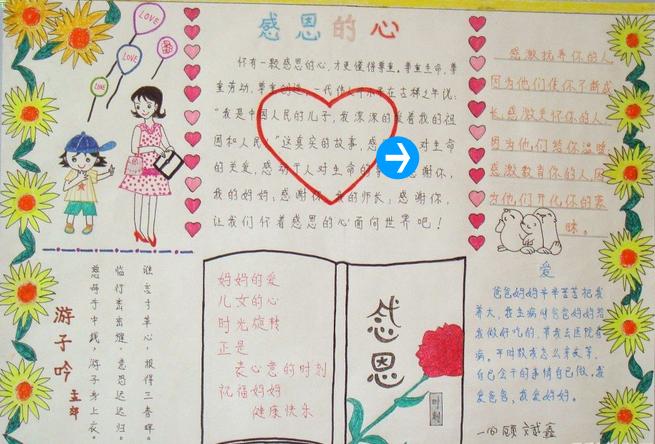 感恩的心
LOVE
LOVE
LOVE
怀有一颗感恩的心,才更懂得尊重。尊重生命、尊
重劳动、尊重创造。一代伟
我是中国人民的儿子,我深深的爱着我的祖
国和人民。"这真实的故事,感 对生命
的关爱,感动于人对生命的 感谢你,
我的妈妈;感谢你,我的师长;感谢你,
让我们怀着感恩的心面向世界吧!
感激抚养你的人
因为他们使你不断成
长,感激关怀你的人,
因为他们给你温暖,
感激教育你的人,因
为他们开化你的蒙
昧。
爱
爸爸妈妈辛辛苦苦把我
养大,我生病时爸爸妈妈给
我做好吃的,带我去医院看
病。平时教我怎么孝夫等,
自己会干的事情自己做,我
爱爸爸,我爱妈妈。
一四 顾斌鑫
游子吟
孟郊
慈母手中线,游子身上衣。
临行密密缝,意恐迟迟归。
谁言寸草心,报得三春晖。
妈妈的爱
儿女的心
时光旋转
正是
表心意的时刻
祝福妈妈
健康快乐
感恩
时刻